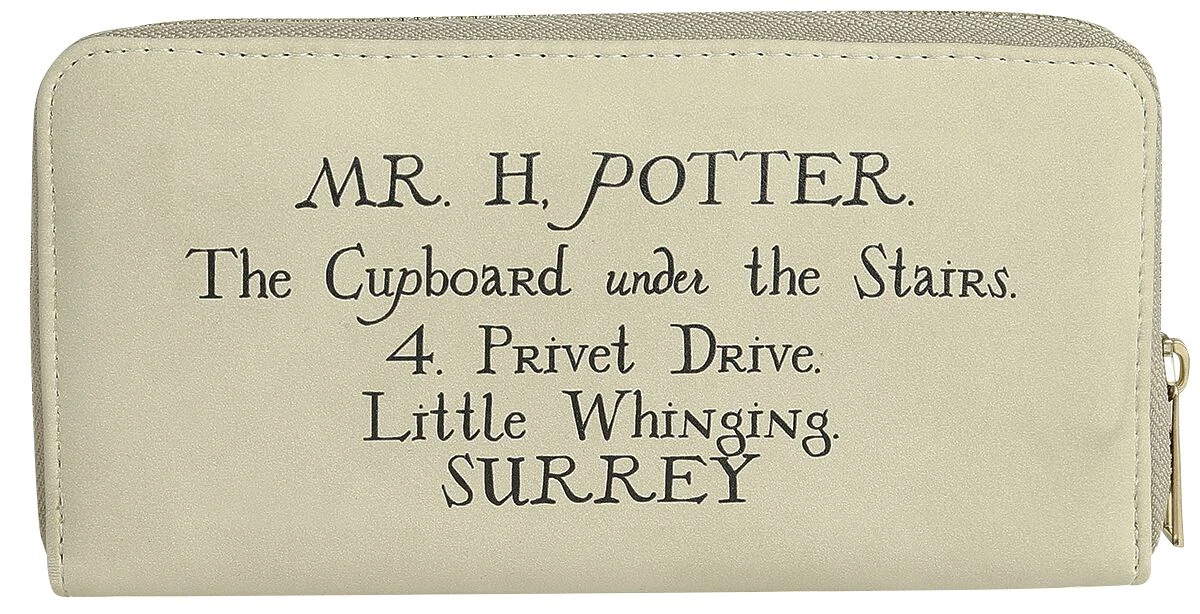 MR. H. POTTER.
The Cupboard under the Stairs.
4. Privet Drive.
Little Whinging.
SURREY